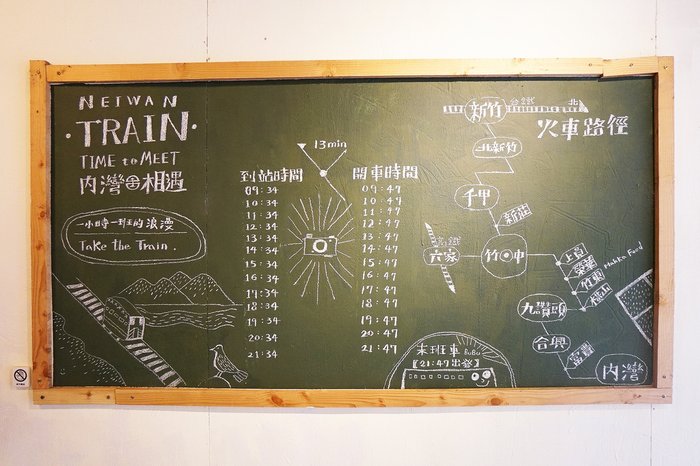 NEIWAN
·TRAIN·
TIME to MEET
內灣 相遇
一小時一班的浪漫
Take the Train.
到站時間
09:34
10:34
11:34
12:34
13:34
14:34
15:34
16:34
17:34
18:34
19:34
20:34
21:34
13min
開車時間
09:47
10:47
11:47
12:47
13:47
14:47
15:47
16:47
17:47
18:47
19:47
20:47
21:47
末班車 BuBu
【21:47出發】
火車路徑
新竹 台鐵 北
北新竹
千甲
新莊
高鐵
六家
竹中
上員
榮華
竹東
橫山
Hakka Food
九讚頭
合興
富貴
內灣